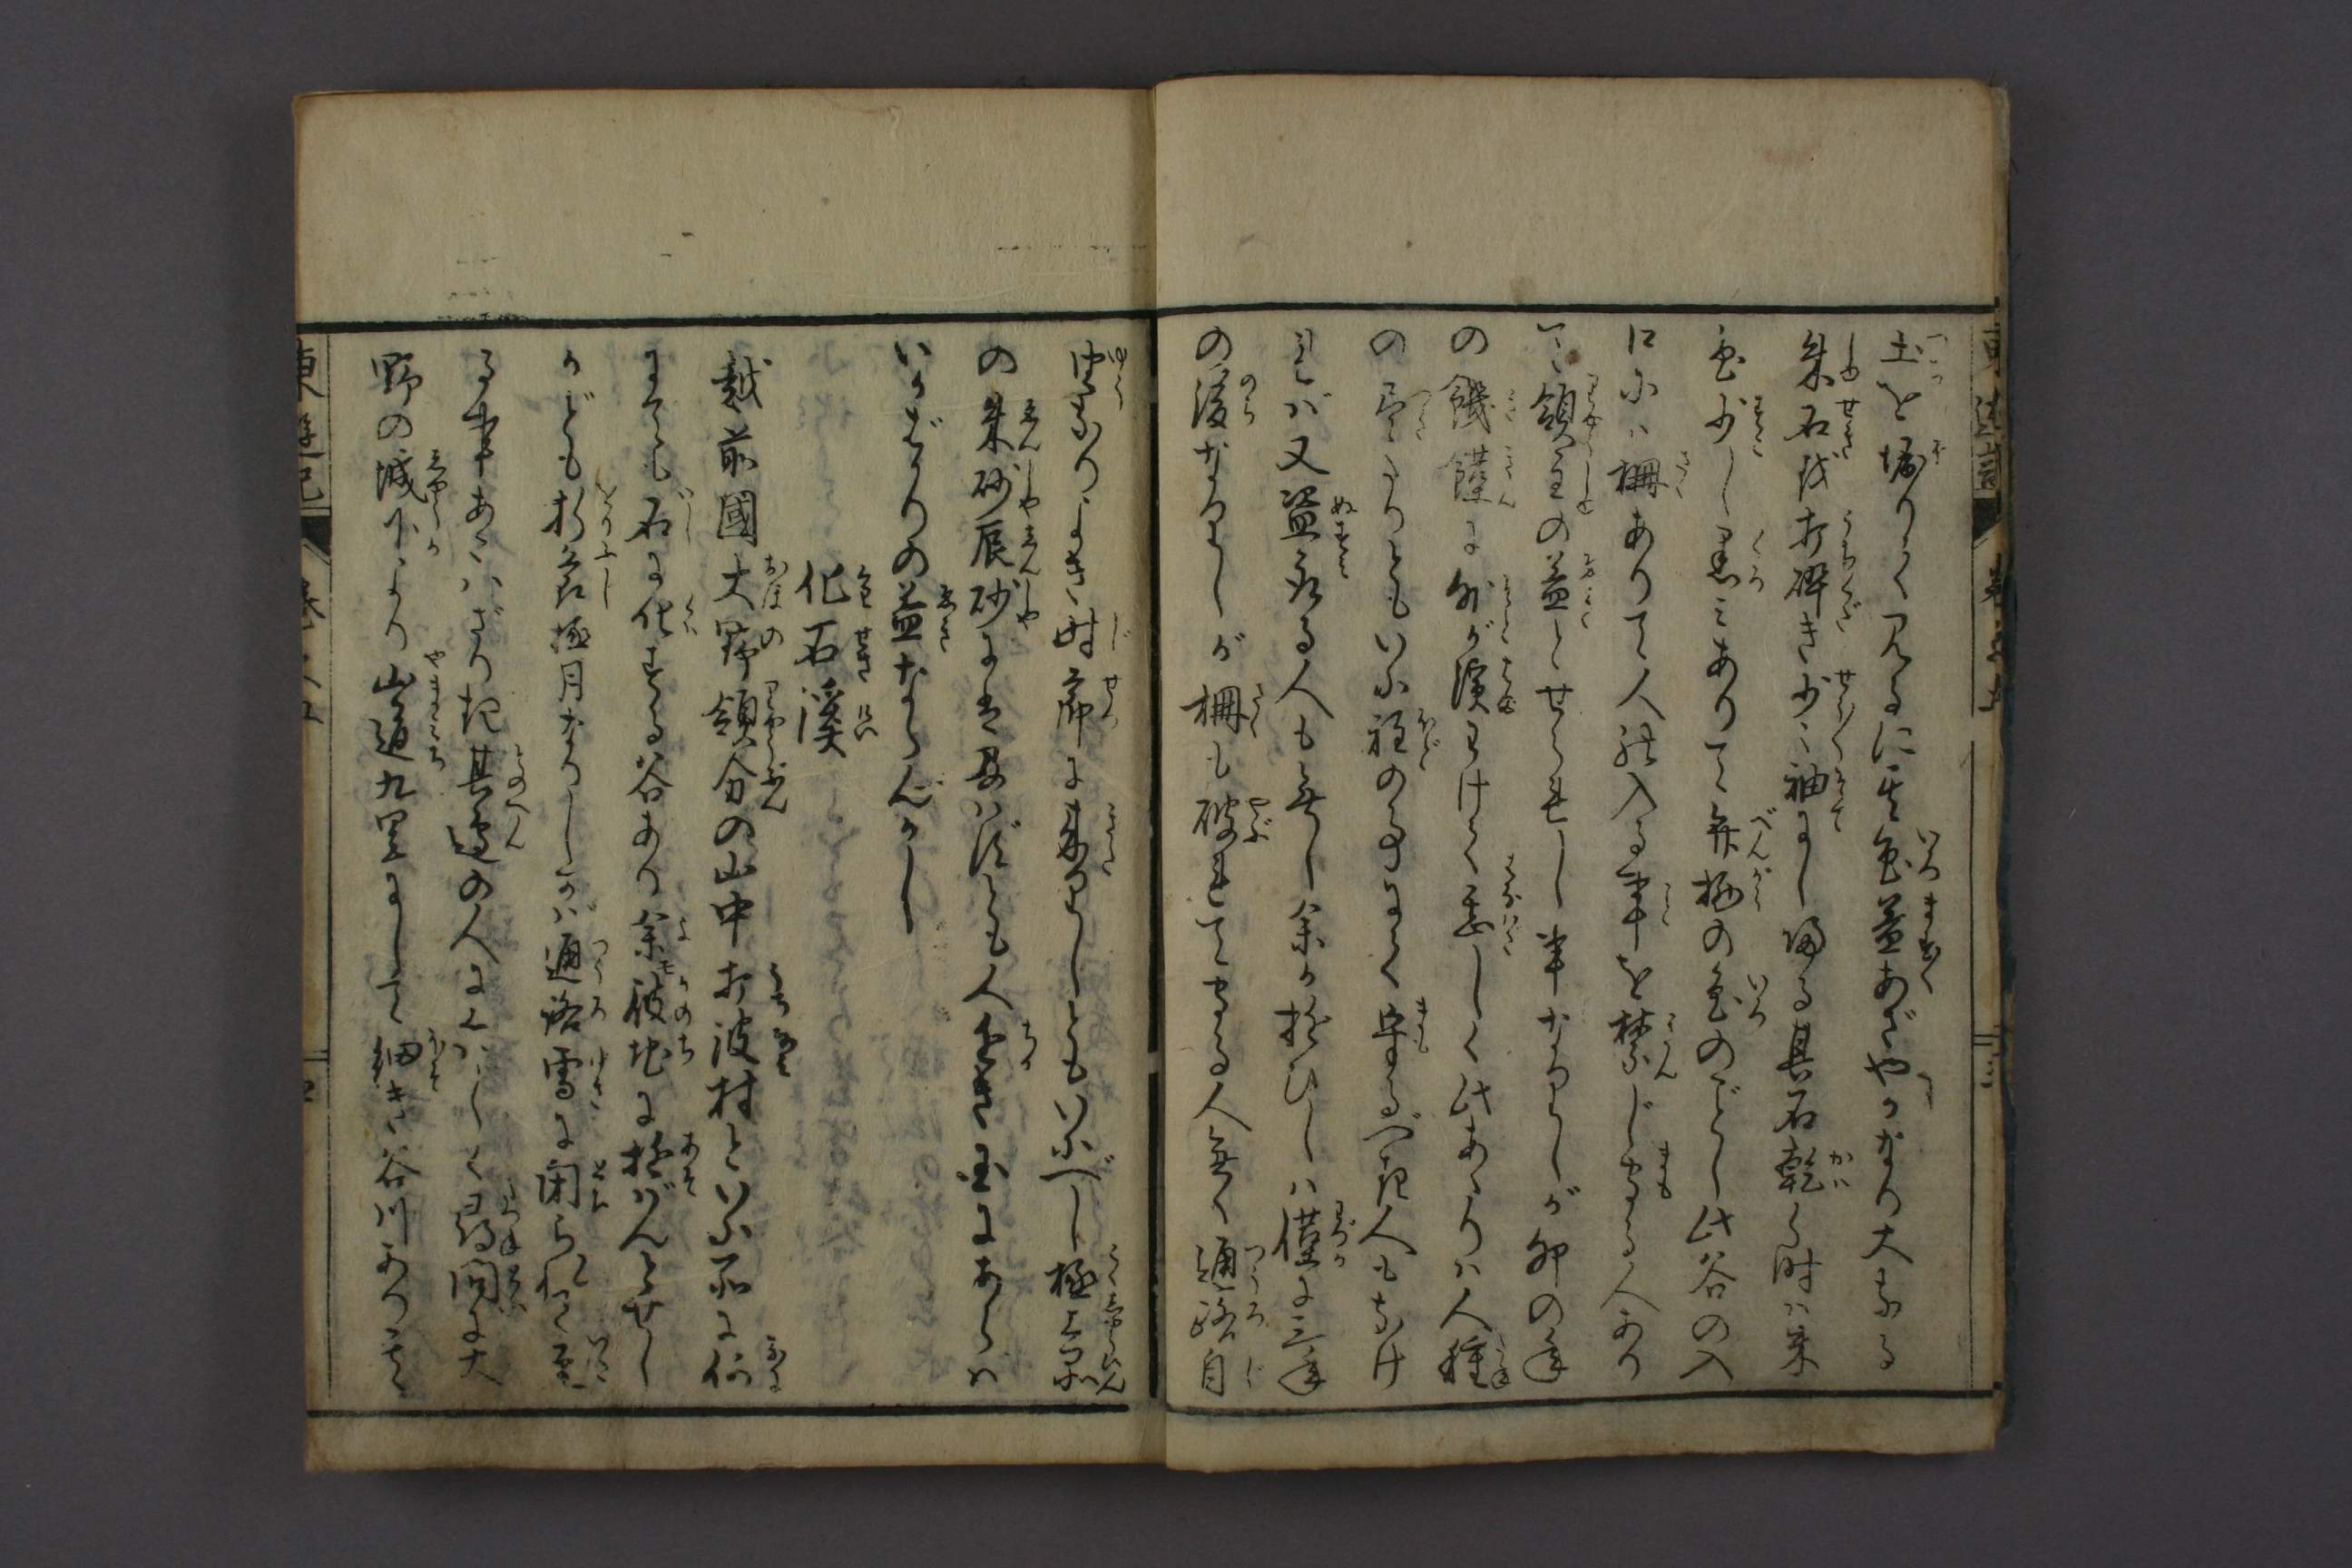 土を堀りて見るに其色益あざやかなり大なる
朱石を打砕き少〻袖にし帰る其石乾く時は朱
色少し黒みありて弁柄の色のごとし此谷の入
口には柵ありて人の入る事を禁じ守る人あり
て領主の益とせられし事なりしが卯の年
の饑饉に外が濱わけて甚しく此あたりは人種
の尽たりともいふ程の事にて守るべき人もなけ
れば又盗取る人も無し余が遊びしは僅に三年
の後なりしが柵も破れて守る人無く通路自
由なりよき時節に来りしともいふべし極上品
の朱砂辰砂には及ばずとも人近き国にあらば
いかばかりの益ならんかし
化石溪
越前國大野領分の山中打波村といふ所に何
にても石に化する谷あり余彼地に遊ばんとせし
かども折節極月なりしかば通路雪に閉られて至
る事あたはざりき其邊の人にくはしく尋問に大
野の城下より山道九里にして細き谷川ありて其
東遊記
巻之五
三
東遊記
巻之五